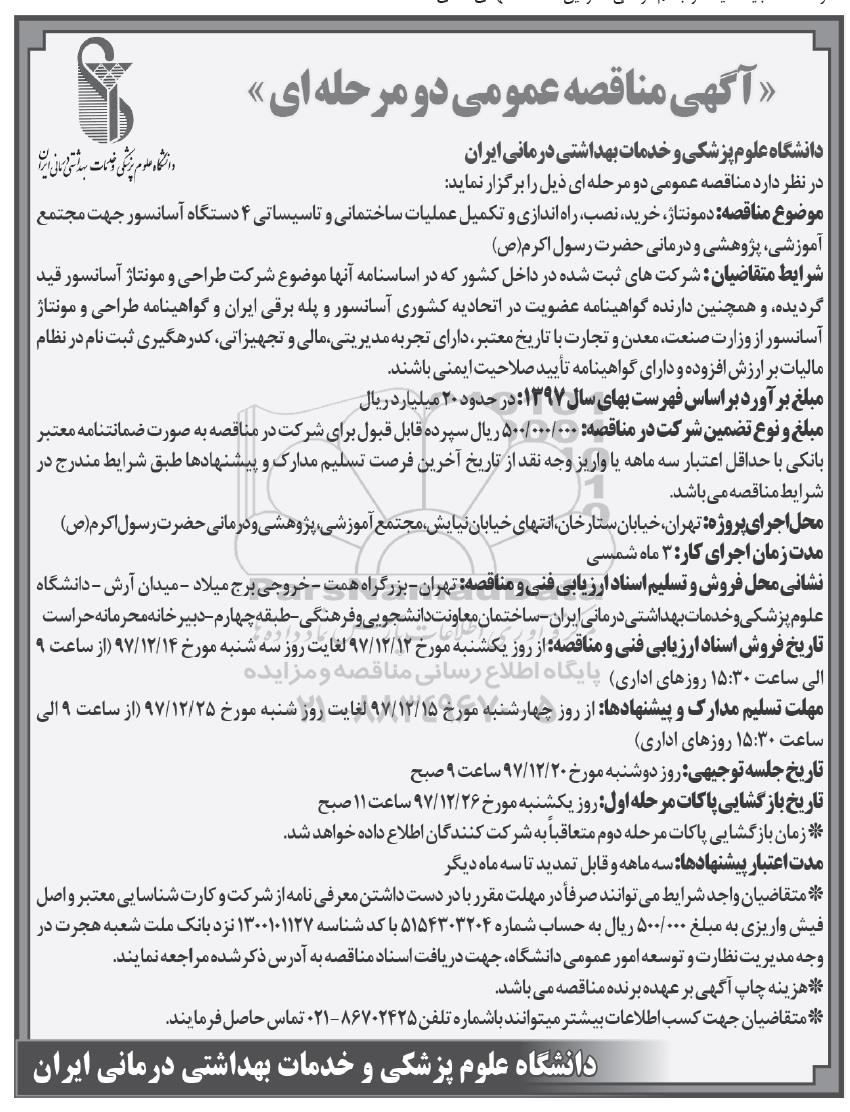 «آگهی مناقصه عمومی دو مرحله ای»
دانشگاه علوم پزشکی و خدمات بهداشتی درمانی ایران
دانشگاه علوم پزشکی و خدمات بهداشتی درمانی ایران
در نظر دارد مناقصه عمومی دو مرحله ای ذیل را برگزار نماید:
موضوع مناقصه: دمونتاژ، خرید، نصب، راه اندازی و تکمیل عملیات ساختمانی و تاسیساتی ۴ دستگاه آسانسور جهت مجتمع
آموزشی، پژوهشی و درمانی حضرت رسول اکرم(ص)
شرایط متقاضیان : شرکت های ثبت شده در داخل کشور که در اساسنامه آنها موضوع شرکت طراحی و مونتاژ آسانسور قید
گردیده، و همچنین دارنده گواهینامه عضویت در اتحادیه کشوری آسانسور و پله برقی ایران و گواهینامه طراحی و مونتاژ
آسانسور از وزارت صنعت، معدن و تجارت با تاریخ معتبر، دارای تجربه مدیریتی،مالی و تجهیزاتی، کدرهگیری ثبت نام در نظام
مالیات بر ارزش افزوده و دارای گواهینامه تأیید صلاحیت ایمنی باشند.
مبلغ برآورد براساس فهرست بهای سال ۱۳۹۷: در حدود ۲۰ میلیارد ریال
مبلغ و نوع تضمین شرکت در مناقصه: ۵۰۰/۰۰۰/۰۰۰ ریال سپرده قابل قبول برای شرکت در مناقصه به صورت ضمانتنامه معتبر
بانکی با حداقل اعتبار سه ماهه یا واریز وجه نقد از تاریخ آخرین فرصت تسلیم مدارک و پیشنهادها طبق شرایط مندرج در
شرایط مناقصه می باشد.
محل اجرای پروژه: تهران،خیابان ستارخان،انتهای خیابان نیایش،مجتمع آموزشی،پژوهشی و درمانی حضرت رسول اکرم(ص)
مدت زمان اجرای کار: ۳ ماه شمسی
نشانی محل فروش و تسلیم اسناد ارزیابی فنی و مناقصه: تهران-بزرگراه همت - خروجی برج میلاد - میدان آرش - دانشگاه
علوم پزشکی و خدمات بهداشتی درمانی ایران-ساختمان معاونت دانشجویی و فرهنگی-طبقه چهارم-دبیرخانه محرمانه حراست
تاریخ فروش اسناد ارزیابی فنی و مناقصه: از روز یکشنبه مورخ ۹۷/۱۲/۱۲ لغایت روز سه شنبه مورخ ۹۷/۱۲/۱۴ (از ساعت ۹
الی ساعت ۱۵:۳۰ روزهای اداری)
پایگاه اطلاع رسانی مناقصه و مزایده
مهلت تسلیم مدارک و پیشنهادها: از روز چهارشنبه مورخ ۹۷/۱۲/۱۵ لغایت روز شنبه مورخ ۹۷/۱۲/۲۵ (از ساعت ۹ الی
ساعت ۱۵:۳۰ روزهای اداری)
تاریخ جلسه توجیهی: روز دوشنبه مورخ ۹۷/۱۲/۲۰ ساعت ۹ صبح
تاریخ بازگشایی پاکات مرحله اول: روز یکشنبه مورخ ۹۷/۱۲/۲۶ ساعت ۱۱ صبح
*زمان بازگشایی پاکات مرحله دوم متعاقباً به شرکت کنندگان اطلاع داده خواهد شد.
مدت اعتبار پیشنهادها: سه ماهه و قابل تمدید تا سه ماه دیگر
*متقاضیان واجد شرایط می توانند صرفأ در مهلت مقرر با در دست داشتن معرفی نامه از شرکت و کارت شناسایی معتبر و اصل
فیش واریزی به مبلغ ۵۰۰/۰۰۰ ریال به حساب شماره ۵۱۵۴۳۰۳۲۰۴ با کد شناسه ۱۳۰۰۱۰۱۱۲۷ نزد بانک ملت شعبه هجرت در
وجه مدیریت نظارت و توسعه امور عمومی دانشگاه، جهت دریافت اسناد مناقصه به آدرس ذکر شده مراجعه نمایند.
*هزینه چاپ آگهی بر عهده برنده مناقصه می باشد.
*متقاضیان جهت کسب اطلاعات بیشتر میتوانند باشماره تلفن ۸۶۷۰۲۴۲۵-۰۲۱ تماس حاصل فرمایند.
دانشگاه علوم پزشکی و خدمات بهداشتی درمانی ایران